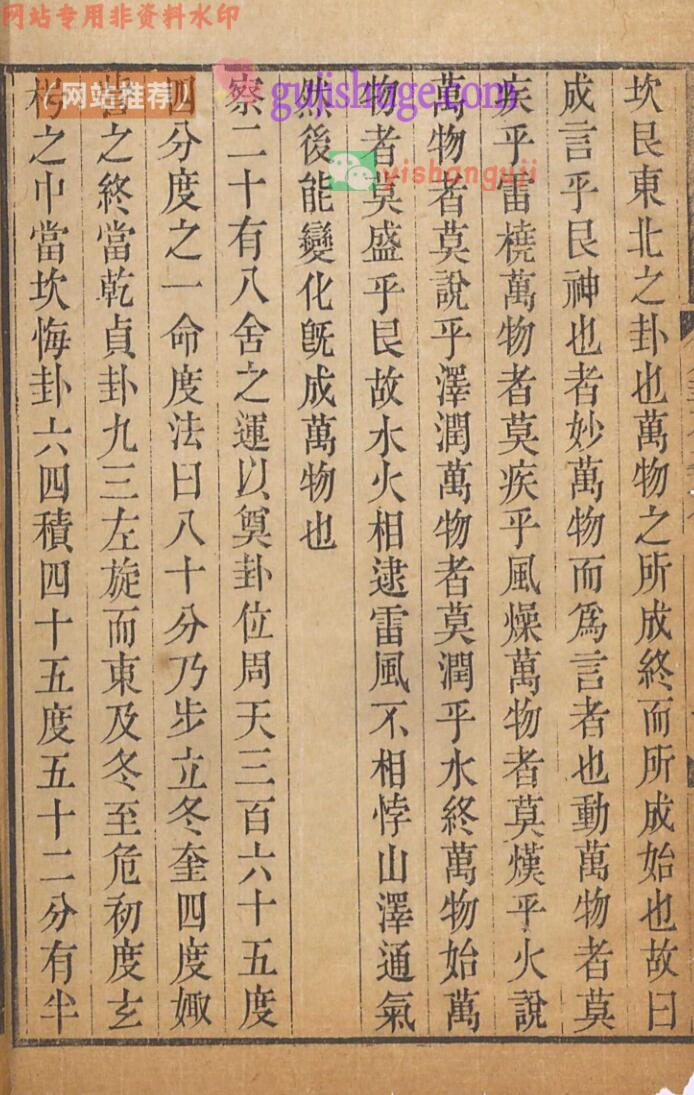 网站专用非资料水印
(网站推荐)
gujishuge.com
yishanguji
坎艮東北之卦也萬物之所成終而所成始也故曰
成言乎艮神也者妙萬物而爲言者也動萬物者莫
疾乎雷橈萬物者莫疾乎風燥萬物者莫熯乎火說
萬物者莫說乎澤潤萬物者莫潤乎水終萬物始萬
物者莫盛乎艮故水火相逮雷風不相悖山澤通氣
然後能變化旣成萬物也
察二十有八舍之運以奠卦位周天三百六十五度
四分度之一命度法曰八十分乃步立冬奎四度娵
訾之終當乾貞卦九三左旋而東及冬至危初度玄
枵之中當坎悔卦六四積四十五度五十二分有半